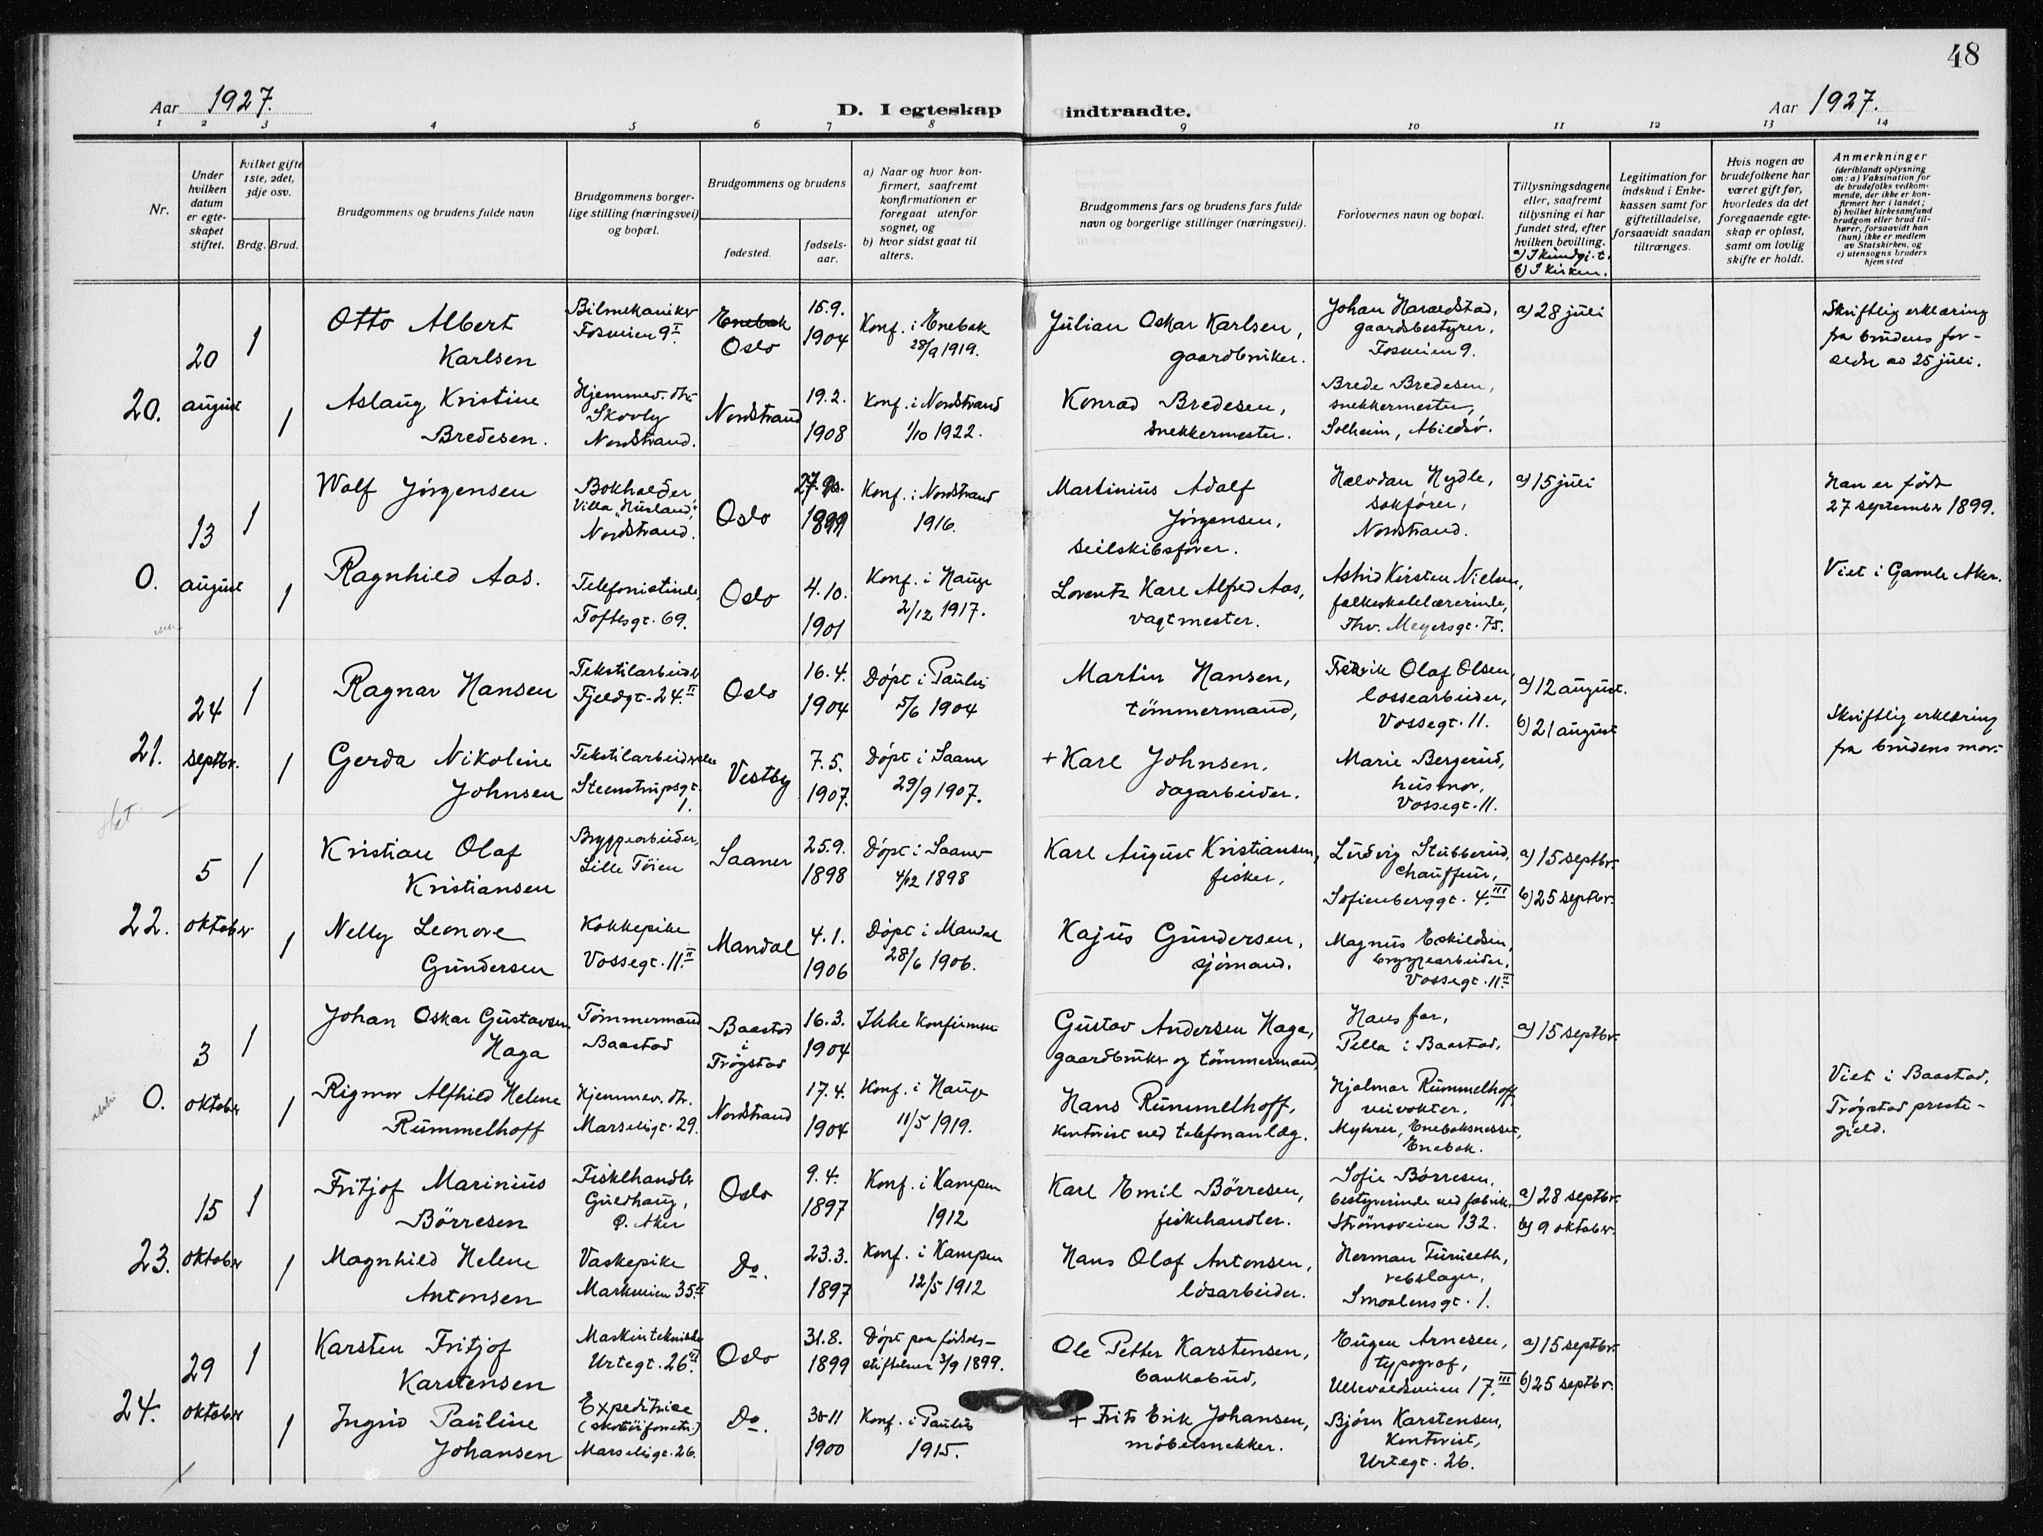 48
Aar 1927.
D. I egteskap indtraadte.
Aar 1927.
1 2 3 4 5 6 7 8 9 10 11 12 13 14
Nr.
Under hvilken datum er egteskapet stiftet.
Hvilket gifte 1ste, 2det, 3dje osv.
Brdg. Brud.
Brudgommens og brudens fulde navn
Brudgommens borgerlige stilling (næringsvei) og bopæl.
Brudgommens og brudens
fødested.
fødselsaar.
a) Naar og hvor konfirmert, saafremt konfirmationen er foregaat utenfor sognet, og
b) hvor sidst gaat til alters.
Brudgommens fars og brudens fars fulde navn og borgerlige stillinger (næringsvei).
Forlovernes navn og bopæl.
Tillysningsdagene eller, saafremt tillysning ei har fundet sted, efter hvilken bevilling.
a) I kundgj. t.
b) I kirken.
Legitimation for indskud i Enkekassen samt for giftetilladelse, forsaavidt saadan tiltrænges.
Hvis nogen av brudefolkene har været gift før, hvorledes da det foregaaende egteskap er opløst, samt om lovlig skifte er holdt.
Anmerkninger
(deriblandt oplysning om: a) Vaksination for de brudefolks vedkommende, der ikke er konfirmert her i landet;
b) hvilket kirkesamfund brudgom eller brud tilhører, forsaavidt han (hun) ikke er medlem av Statskirken, og
c) utensogns bruders hjemsted
20. 20 august
1 Otto Albert Karlsen
Bilmekaniker Fosveien 9 I
Enebak Oslo
15.9. 1904
Konf. i Enebak 28/9 1919.
Julian Oskar Karlsen, gaardbruker.
Johan Haraldstad, gaardsbestyrer, Fosveien 9.
a) 28 juli
Skriftlig erklæring fra brudens forældre av 25 juli.
1 Aslaug Kristine Bredesen.
Hjemmev. dtr. Skovly Nordstrand.
Nordstrand
19.2. 1908
Konf. i Nordstrand 1/10 1922.
Konrad Bredesen, snekkermester.
Brede Bredesen, snekkermester, Solheim, Abildsö.
0. 13 august
1 Wolf Jörgensen
Bokholder, Villa "Husland", Nordstrand.
Oslo
27.9. 1899
Konf. i Nordstrand 1916.
Martinius Adolf Jörgensen, seilskibsfører.
Halvdan Nydle, sakfører, Nordstrand.
a) 15 juli
Han er født 27 september 1899.
1 Ragnhild Aas.
Telefonistinde, Toftesgt. 69.
Oslo
4.10. 1901
Konf. i Hauge 2/12 1917.
Lorentz Karl Alfred Aas, vagtmester.
Astrid Kirsten Nielsen, folkeskolelærerinde, Thv. Meyersgt. 75.
Viet i Gamle Aker.
21. 24 septbr.
1 Ragnar Hansen
Tekstilarbeider Fjeldgt. 24 II
Oslo
16.4. 1904
Døpt i Paulus 5/6 1904
Martin Hansen, tömmermand,
Fredrik Olaf Olsen, lossearbeider, Vossegt. 11.
a) 12 august.
b) 21 august
Skriftlig erklæring fra brudens mor.
1 Gerda Nikoline Johnsen
Tekstilarbeiderske Steenstrupsgt. 1.
Vestby
7.5. 1907.
Døpt i Saaner 29/9 1907.
+ Karl Johnsen, dagarbeider.
Marie Bergerud, husmor, Vossegt. 11.
22. 5 oktober
1 Kristian Olaf Kristiansen
Bryggearbeider, Lille Töien
Saaner
25.9. 1898
Døpt i Saaner 4/12 1898
Karl August Kristiansen, fisker,
Ludvig Stubberud, chauffeur, Sofienberggt. 4. III
a) 15 septbr.
b) 25 septbr.
1 Nelly Leonore Gundersen
Kokkepike Vossegt. 11. II
Mandal
4.1. 1906
Døpt i Mandal 28/6 1906.
Kajus Gundersen, sjömand.
Magnus Eskildsen, bryggearbeider, Vossegt. 11 II
0. 3 oktober
1 Johan Oskar Gustavsen Haga
Tömmermand Baastad
Baastad i Trøgstad
16.3. 1904
Ikke konfirmert
Gustav Andersen Haga, gaardbruker og tömmermand
Hans far, Pella i Baastad.
a) 15 septbr.
1 Rigmor Alfhild Helene Rummelhoff
Hjemmev. dtr. Marseligt. 29.
Nordstrand
17.4. 1904
Konf. i Hauge 11/5 1919.
Hans Rummelhoff, kontorist ved telefonanlæg.
Hjalmar Rummelhoff, veivokter, Myhrer, Enebaksnesset, Enebak.
Viet i Baastad, Trøgstad prestegjeld.
23. 15 oktober
1 Fritjof Marinius Börresen
Fiskehandler Guldhaug, Ö. Aker
Oslo
9.4. 1897
Konf. i Kampen 1912
Karl Emil Börresen, fiskehandler.
Sofie Börresen, bestyrerinde ved fabrik, Strömsveien 132.
a) 28 septbr.
b) 9 oktober.
1 Magnhild Helene Antonsen
Vaskepike Markveien 35 II
Do.
23.3. 1897
Konf. i Kampen 12/5 1912
Hans Olaf Antonsen, lösarbeider.
Herman Furuseth, rebslager, Smaalensgt. 1.
24. 29 oktober
1 Karsten Fritjof Karstensen
Maskintekniker Urtegt. 26
Oslo
31.8. 1899
Døpt paa fødselsstiftelsen 3/9 1899.
Ole Petter Karstensen, bankbud,
Eugen Arnesen, typograf, Ullevoldsveien 17. III
a) 15 septbr.
b) 25 septbr.
1 Ingrid Pauline Johansen
Expeditrice Marseligt. 26.
Do.
30.11 1900
Konf. i Paulus 1915.
+ Frits Erik Johansen, möbelsnekker.
Bjørn Karstensen, kontorist, Urtegt. 26.